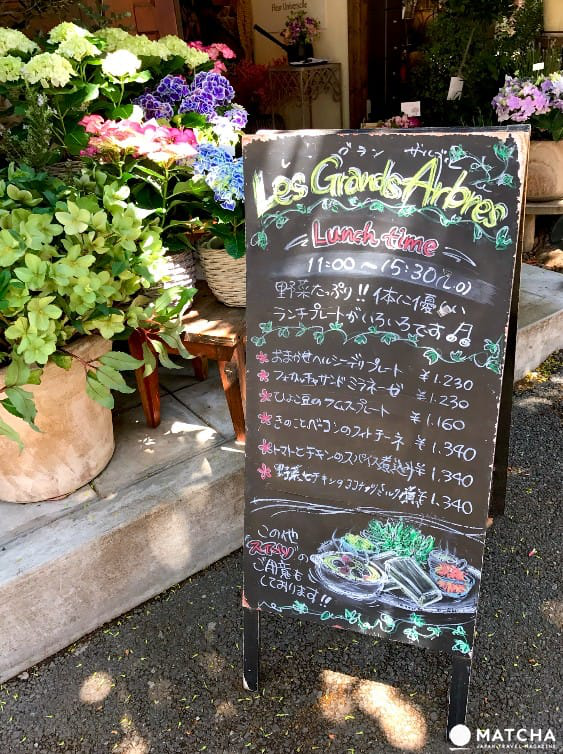 Fleur Universelle
グラン ザルブル
Les Grands Arbres
Lunch time
11:00〜15:30(L.O)
野菜たっぷり!! 体に優しい
ランチプレートがいろいろです♫
おまかせヘルシーデリプレート ¥1.230
フォカッチャサンドミラネーゼ ¥1.230
ひよこ豆のフムスプレート ¥1.160
きのことベーコンのフィトチーネ ¥1.340
トマトとチキンのスパイス煮込み ¥1.340
野菜とチキンのココナッツミルク煮 ¥1.340
この他
"スイーツ"の
ご用意も
しております!!
MATCHA
JAPAN TRAVEL MAGAZINE